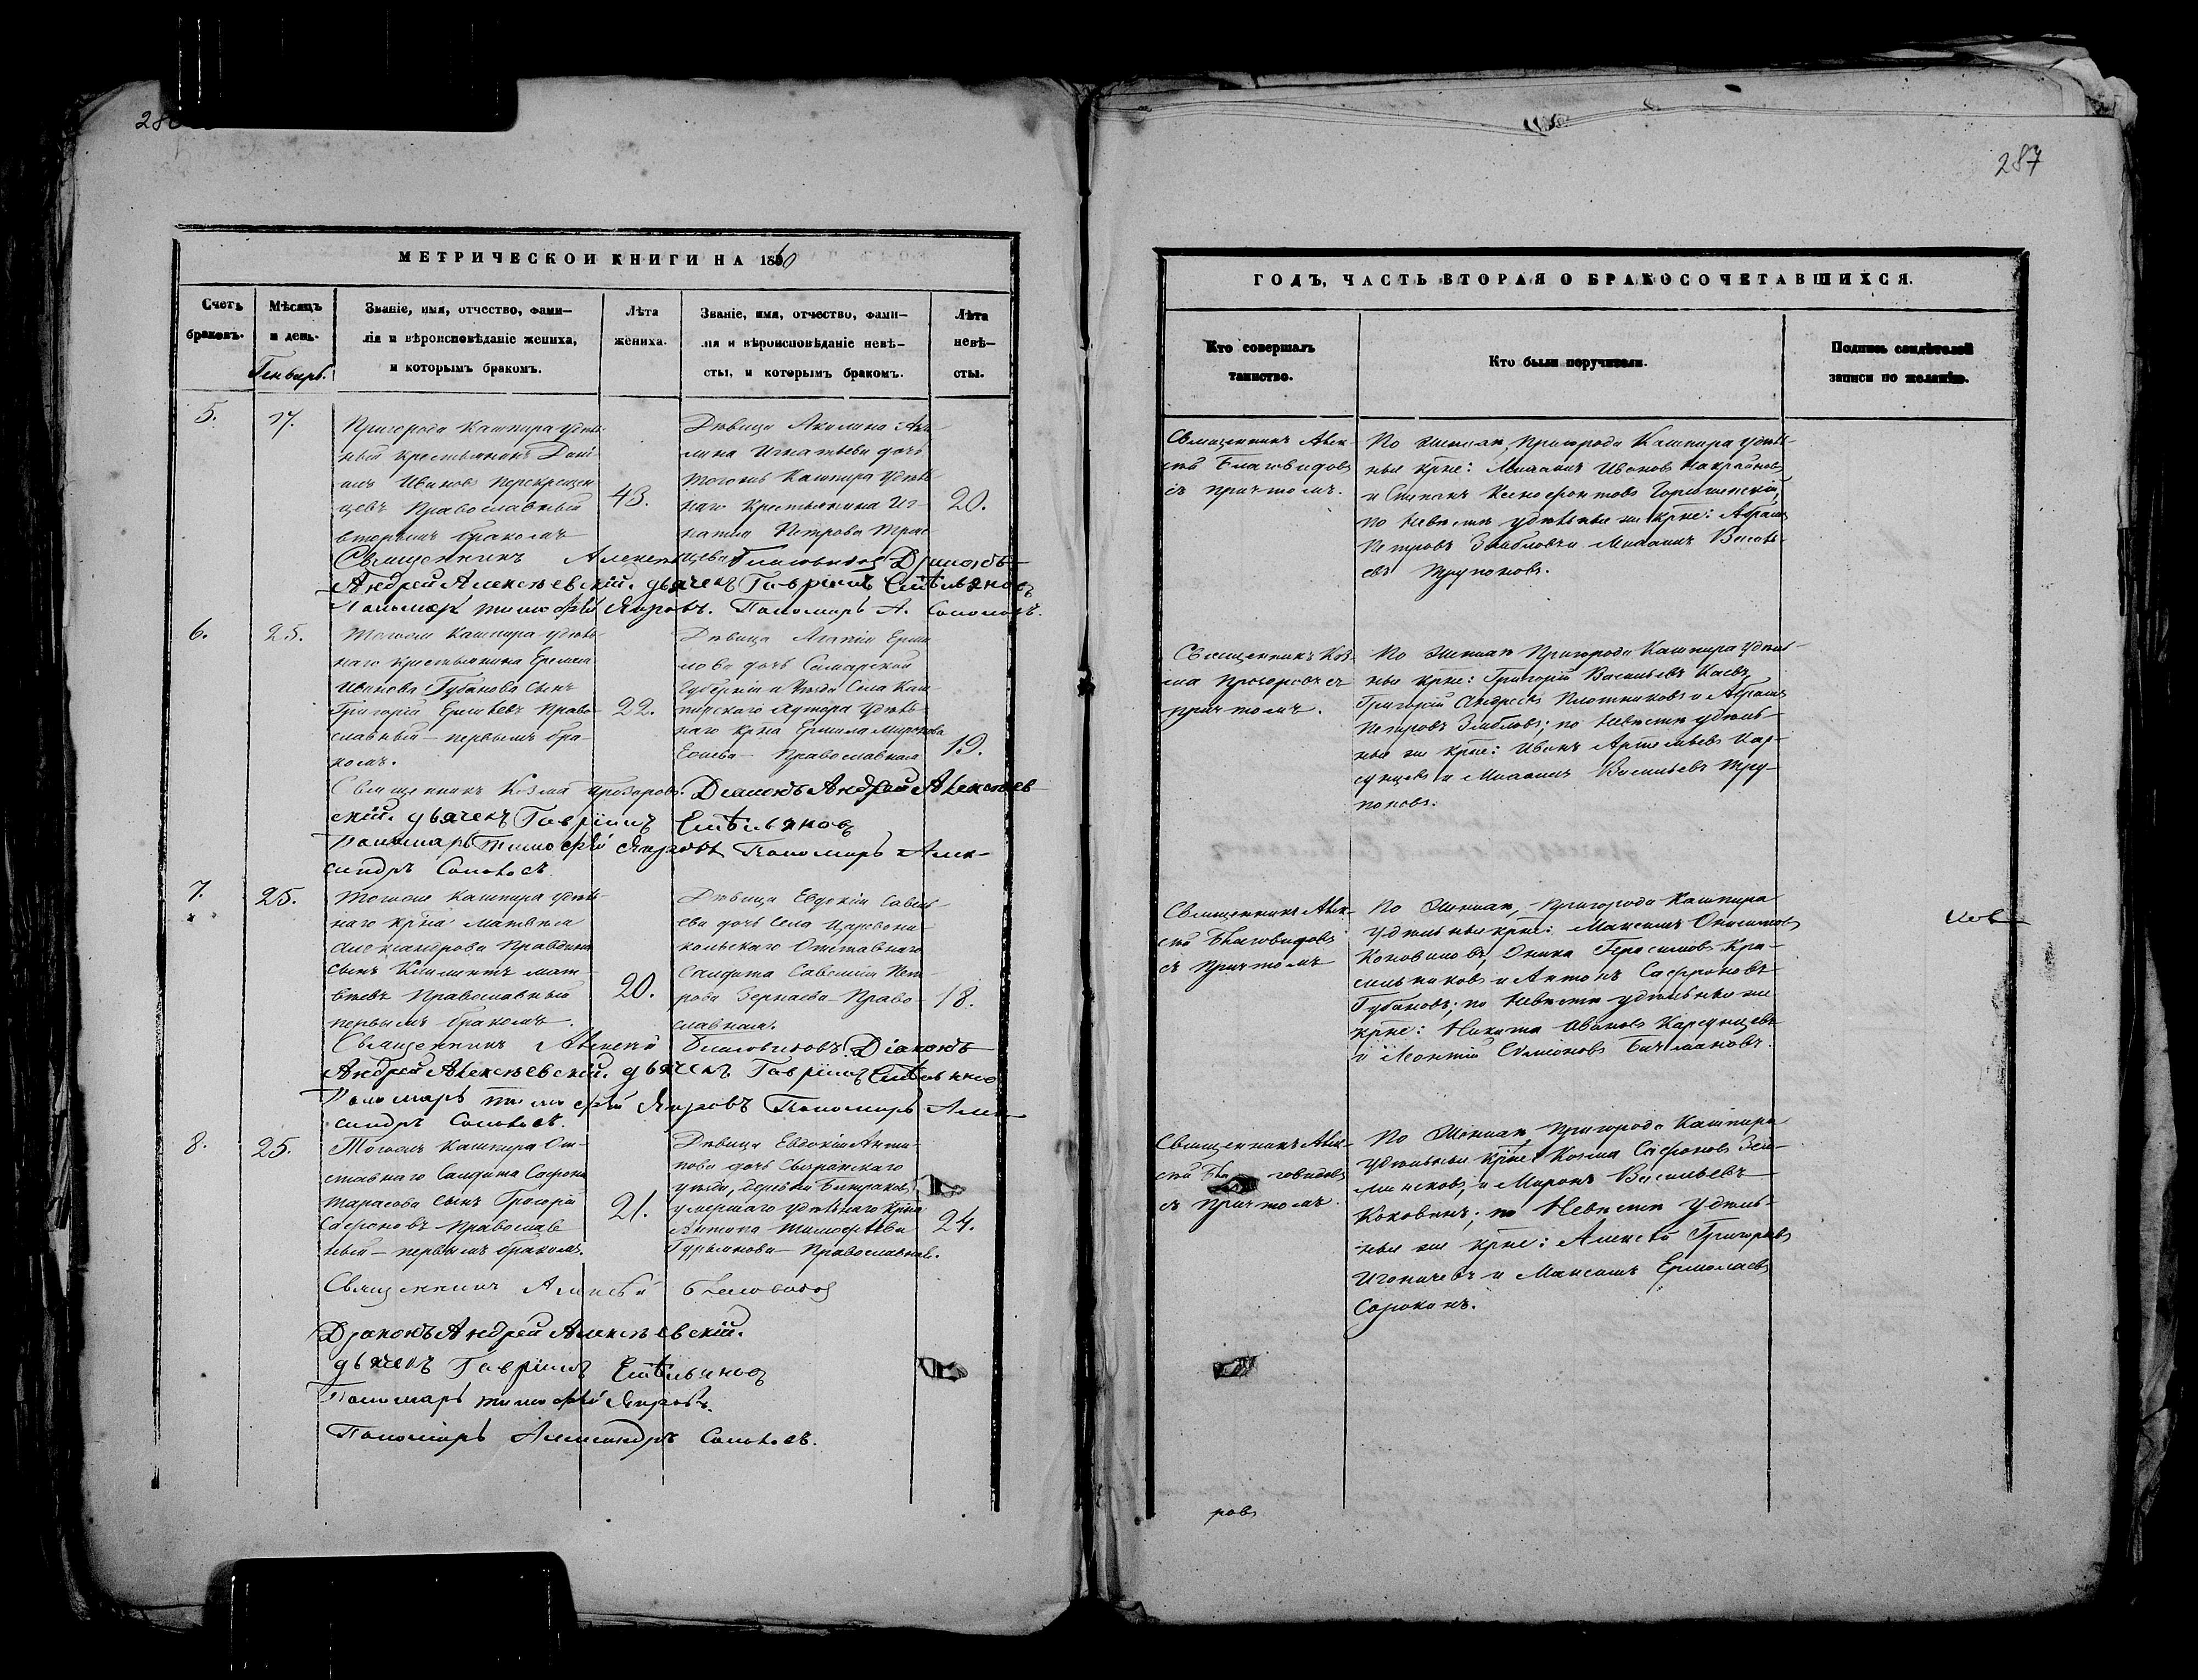 МЕТРИЧЕСКОИ КНИГИ НА 1860
Счетъ браковъ.
Мѣсяцъ и день.
Генварь.
Званіе, имя, отчество, фами-
лія и вѣроисповѣданіе жениха,
и которымъ бракомъ.
Лѣта
жениха.
Званіе, имя, отчество, фами-
лія и вѣроисповѣданіе невѣ-
сты, и которымъ бракомъ.
Лѣта
невѣ-
сты.
5.
17.
Пригорода Кашпира удѣль-
ный крестьянинъ Дані-
илъ Ивановъ Перекрещен
цевъ Православный
вторымъ бракомъ
48.
Дѣвица Акилина
Игнатьева дочь
тогожъ Кашпира удѣль
наго крестьянина Иг-
натія Петрова
20.
Священникъ Алексѣй Благовидовъ Діаконъ
Андрей Алексѣевскій. дьячекъ Гавріилъ Емѣльяновъ
Пономарь тимофѣй Яировъ. Пономарь А. Соловьевъ.
6.
25.
Тогоже Кашпира удѣль-
наго крестьянина
Иванова Губанова сынъ
Григорій Право-
славный – первымъ бра-
комъ.
22.
Дѣвица Агапія Ерми-
лова дочь Самарской
Губерніи и Уѣзда Села Каш-
пирскаго хутора Удѣль-
наго крна Ермила Миронова
Православная
19.
Священникъ Козма Прозоровъ. Діаконъ Андрей Алексѣев
скій. дьячекъ Гавріилъ Емѣльяновъ
Пономарь Тимофѣй Яировъ Пономарь Алек-
сандръ Соловьевъ.
7.
25.
Тогоже Кашпира удѣль-
наго крна Матвѣя
Александрова Правдина
сынъ Климентъ Мат-
вѣевъ Православный
первымъ бракомъ.
20.
Дѣвица Евдокія Савель-
ева дочь Села Царевони-
кольскаго Отставнаго
Салдата Савелія Пет-
рова Зернаева – Право-
славная.
18.
Священникъ Алексѣй Благовидовъ. Діаконъ
Андрей Алексѣевскій. дьячекъ Гавріилъ Емѣльянов
Пономарь тимофѣй Яировъ Пономарь Алек-
сандръ Соловьевъ.
8.
25.
Тогожъ Кашпира От-
ставнаго Салдата Сафрона
Тарасова сынъ Григорій
Сафроновъ Православ
ный – первымъ бракомъ.
21.
Дѣвица Евдокія Анти-
пова дочь Сызранскаго
уѣзда, деревни
умершаго удѣльнаго крна
Антипа Тимофѣева
Гурьянова – Православная.
24.
Священникъ Алексѣй Благовидовъ
Діаконъ Андрей Алексѣевскій.
дьячекъ Гавріилъ Емѣльяновъ
Пономарь тимофѣй Яировъ.
Пономарь Александръ Соловьевъ.
287
ГОДЪ, ЧАСТЬ ВТОРАЯ О БРАКОСОЧЕТАВШИХСЯ.
Кто совершалъ
таинство.
Кто были поручители.
Подпись свидѣтелей
записи по желанію.
Священникъ Алек-
сѣй Благовидовъ
съ причтомъ.
По женихѣ, Пригорода Кашпира удѣль-
ные крне: Михаилъ Ивановъ
и Степанъ Ксенофонтовъ
по невѣстѣ удѣльные же крне: Абрамъ
Петровъ Зябловъ и Михаилъ Василь-
евъ Трупоновъ.
Священникъ Коз-
ма Прозоровъ съ
причтомъ.
По женихѣ Пригорода Кашпира Удѣль-
ные крне: Григорій Васильевъ Каевъ,
Григорій Андреевъ Плотниковъ и Абрамъ
Петровъ Зябловъ; по невѣстѣ удѣль-
ные же крне: Иванъ Артемьевъ Кар-
сунцевъ и Михаилъ Васильевъ Тру-
поновъ.
Священникъ Алек-
сѣй Благовидовъ
съ причтомъ
По женихѣ, Пригорода Кашпира
Удѣльные крне: Максимъ Онисимовъ
Коноваловъ, Оника Герасимовъ Кра-
сильниковъ и Антонъ Сафроновъ
Губановъ; по невѣстѣ удѣльные же
крне: Никита Ивановъ Карсунцевъ
и Леонтій Симеоновъ Бичмановъ.
ков
Священникъ Алек-
сѣй Благовидовъ
съ причтомъ.
По женихѣ Пригорода Кашпира
удѣльные крне Козма Сафроновъ Зем-
лянсковъ, и Миронъ Васильевъ
Коковинъ; по Невѣстѣ Удѣль-
ные же крне: Алексѣй Григорьевъ
и Максимъ Ермолаевъ
Сорокинъ.
ровъ